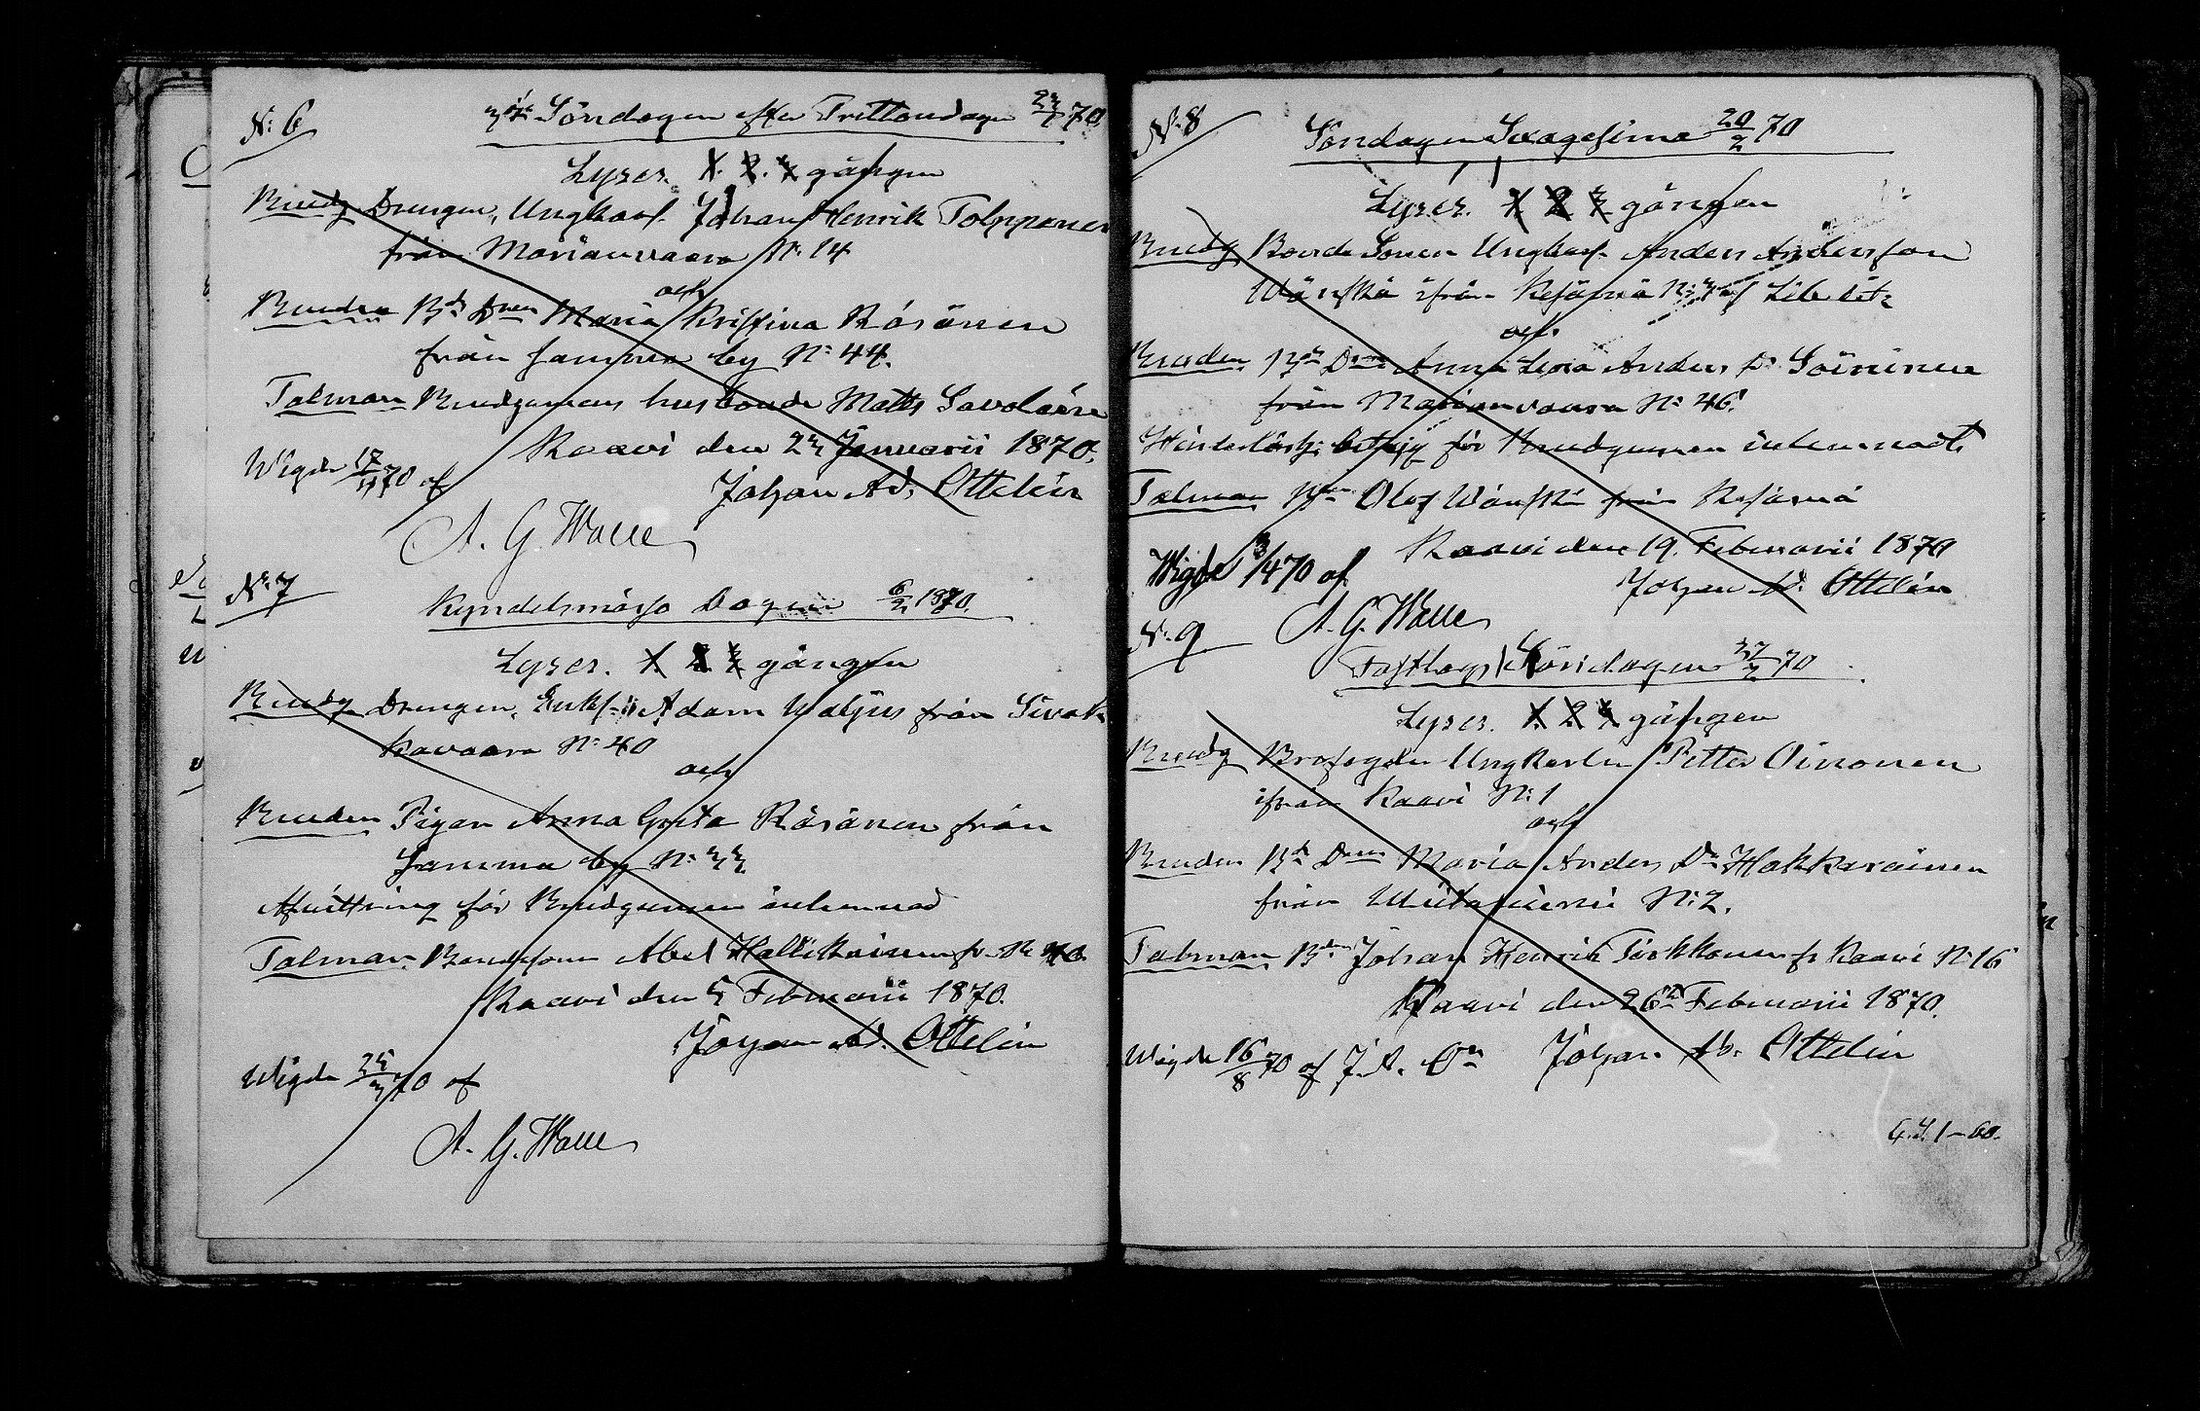 N: 6
3de Söndagen efter Trettondagen 23/1 70
Lyses. 1. 2. 3 gången
Brudg Drengen, Ungkarl. Johan Henrik Tolppanen
från Marianvaara N: 14
och
Bruden Bd Dren Maria Kristina Räsänen
från Jamma by N: 44.
Talman Brudgumens husbonde Matts Savolain
Kaavi den 23 Januarii 1870.
Wigde 17/4 70 af
Johan Ad. Ottelin
A. G. Walle
N: 7
Kyndelsmässo Dagen 6/2 1870.
Lyses. 1 2 3 gången
Brudg Drengen, Enkl. Adam Waljus från Sivak
kavaara N: 40
och
Bruden Pigan Anna Greta Räsänen från
Jamma by N: 33
Afvittring för Brudgumen inlemnad
Talman. Bondeson Abel Hallikainen fr. N: 40
Kaavi den 5 Februarii 1870.
Johan Ad. Ottelin
Wigde 25/3 70 af
A. G. Walle
N: 8
Söndagen Sexagesima 20/2 70
Lyses. 1 2 3 gången
Brudg Bonde Sonen Ungkarl. Anders Andersson
Wänskä ifrån Libelits
och
Bruden Bde Dren Anna Lovisa Anders Dr Soininen
från Marianvaara N: 46.
Hinderlösh: betyg för Brudgummen inlemnadt
Talman Bn Olof Wänskä från
Kaavi den 19. Februarii 1870
Wigde 3/4 70 af
Johan Ad. Ottelin
A. G. Walle
N: 9
Fastlags Söndagen 27/2 70
Lyses. 1. 2 3 gången
Brudg Brofogden Ungkarlen Petter Oinonen
ifrån Kaavi N: 1
och
Bruden Bde Dren Maria Anders Dr Hakkarainen
från N: 2.
Talman. Bden Johan Henrik Tirkkonen fr Kaavi N: 16
Kaavi den 26 Februarii 1870.
Wigde 16/8 70 af J. A. On Johan Ad. Ottelin
G. S. 1–60.